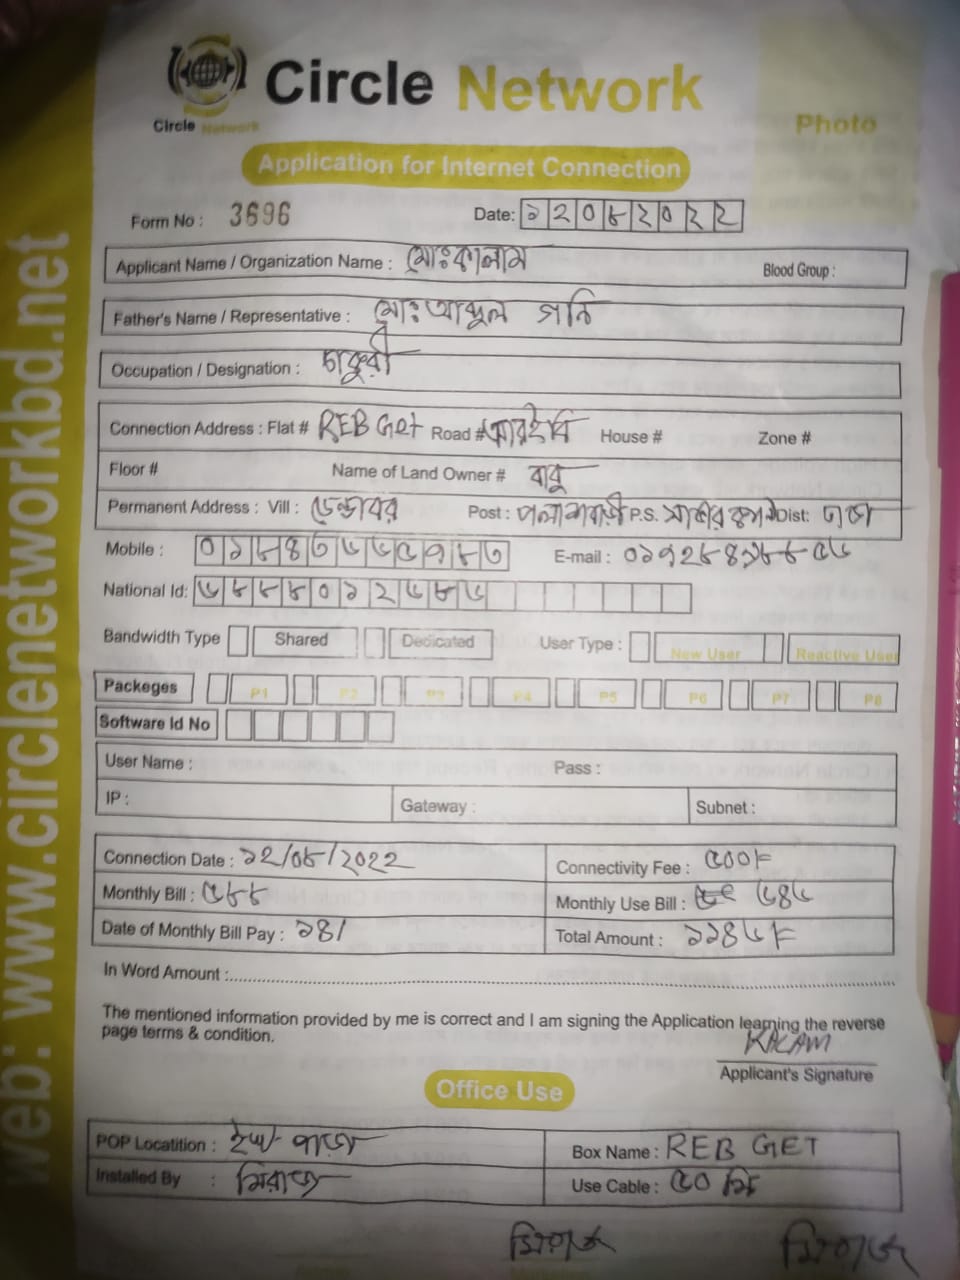 Circle Network
Circle Network
Photo
Application for Internet Connection
Form No : 3696
Date: ১২০৮২০২২
Applicant Name / Organization Name : মোঃকালাম
Blood Group :
Father's Name / Representative : মোঃ আব্দুল গনি
Occupation / Designation : চাকুরী
Connection Address : Flat # REB GET Road # আরইবি House # Zone #
Floor # Name of Land Owner # বাবু
Permanent Address : Vill : ডেন্ডাবর Post : পলাশবাড়ী P.S. Dist: ঢাকা
Mobile :
E-mail :
National Id:
Bandwidth Type Shared Dedicated User Type : New User Reactive User
Packeges P1 P2 P3 P4 P5 P6 P7 P8
Software Id No
User Name : Pass :
IP : Gateway : Subnet :
Connection Date : ১২/০৮/২০২২ Connectivity Fee : ৫০০/=
Monthly Bill : ৫৮৮ Monthly Use Bill : ৬৪৬
Date of Monthly Bill Pay : ১৪/ Total Amount : ১১৪৬/=
In Word Amount :
The mentioned information provided by me is correct and I am signing the Application learning the reverse
page terms & condition.
KALAM
Applicant's Signature
Office Use
POP Locatition : Box Name : REB GET
Installed By : মিরাজ Use Cable : ৫০ মি
মিরাজ মিরাজ
web: www.circlenetworkbd.net